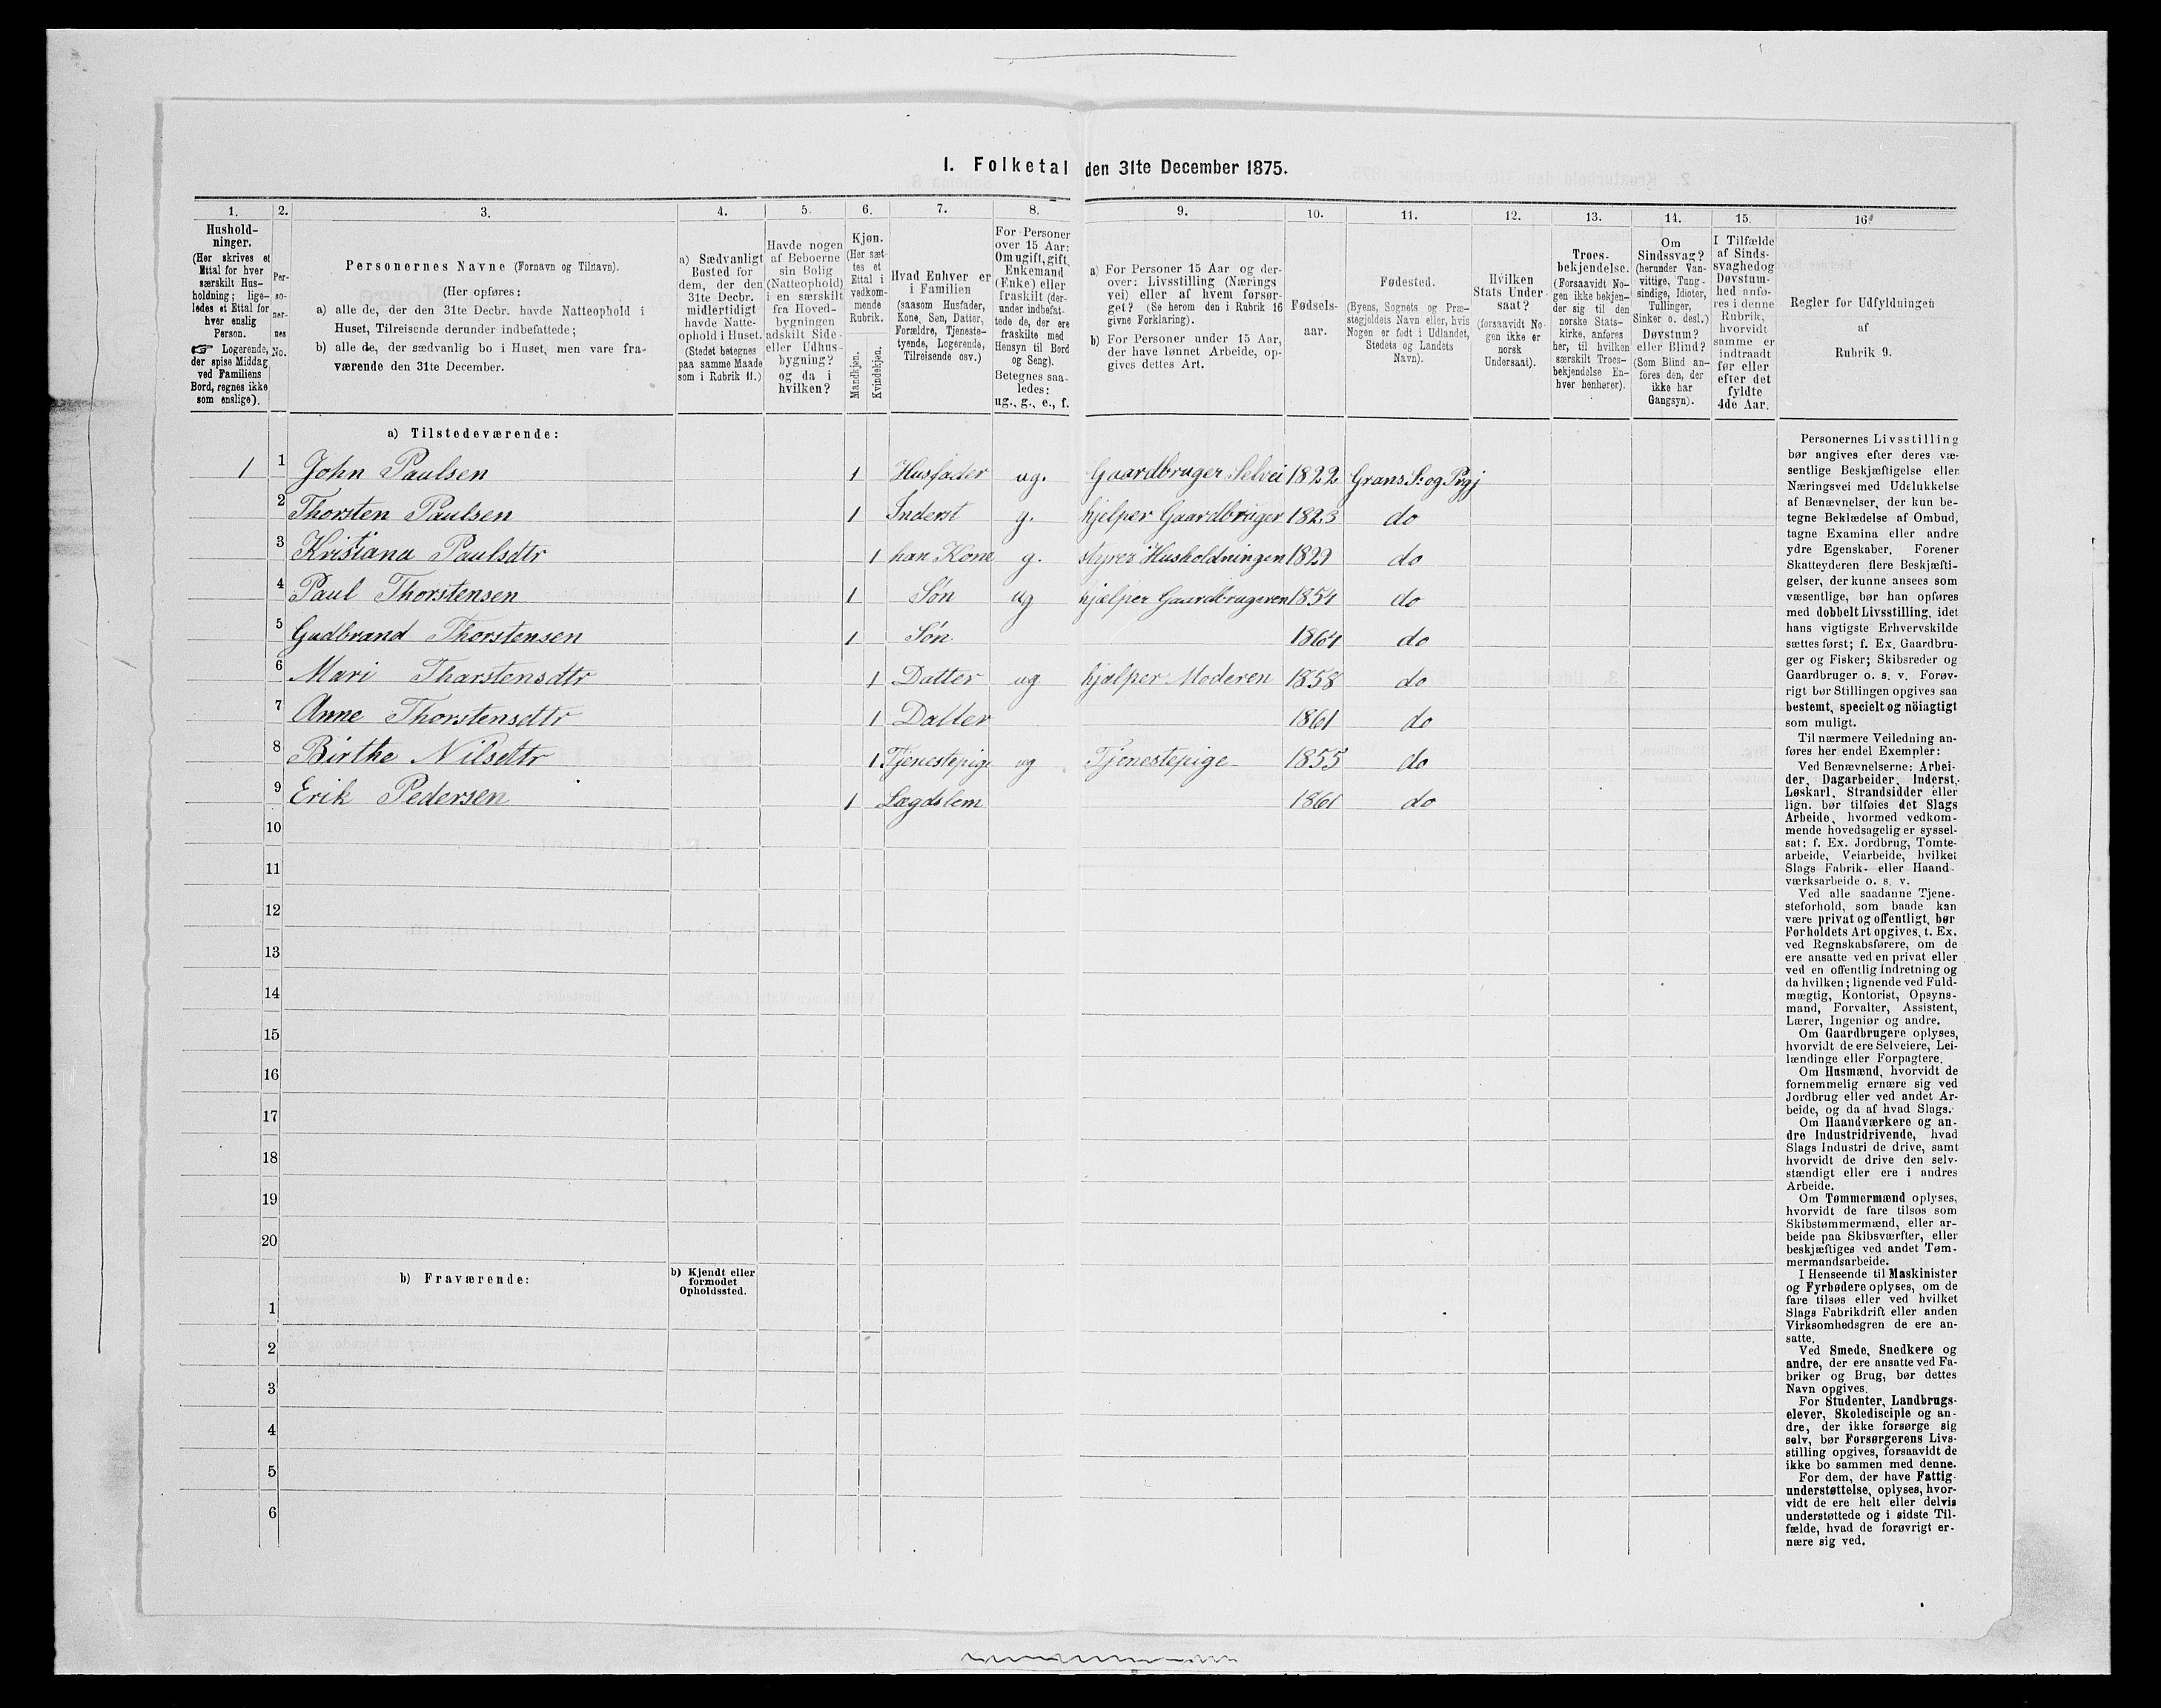 I. Folketal den 31te December 1875.
1. 2. 3. 4. 5. 6. 7. 8. 9. 10. 11. 12. 13. 14. 15. 16.
Hushold-
ninger.
(Her skrives et
Ettal for hver
særskilt Hus-
holdning; lige-
ledes et Ettal for
hver enslig
Person.
☞ Logerende,
der spise Middag
ved Familiens
Bord, regnes ikke
som enslige).
Per-
so-
ner-
nes
No.
Personernes Navne (Fornavn og Tilnavn).
(Her opføres:
a) alle de, der den 31te Decbr. havde Natteophold i
Huset, Tilreisende derunder indbefattede;
b) alle de, der sædvanlig bo i Huset, men vare fra-
værende den 31te December.
a) Sædvanligt
Bosted for
dem, der den
31te Decbr.
midlertidigt
havde Natte-
ophold i Huset.
(Stedet betegnes
paa samme Maade
som i Rubrik 11.)
Havde nogen
af Beboerne
sin Bolig
(Natteophold)
i en særskilt
fra Hoved-
bygningen
adskilt Side-
eller Udhus-
bygning?
og da i
hvilken?
Kjøn.
(Her sæt-
tes et
Ettal i
vedkom-
mende
Rubrik.
Mandkjøn.
Kvindekjøn.
Hvad Enhver er
i Familien
(saasom Husfader,
Kone, Søn, Datter,
Forældre, Tjeneste-
tyende, Logerende,
Tilreisende osv.)
For Personer
over 15 Aar:
Om ugift, gift,
Enkemand
(Enke) eller
fraskilt (der-
under indbefat-
tede de, der ere
fraskilte med
Hensyn til Bord
og Seng).
Betegnes saa-
ledes:
ug., g., e., f.
a) For Personer 15 Aar og der-
over: Livsstilling (Nærings
vei) eller af hvem forsør-
get? (Se herom den i Rubrik 16
givne Forklaring).
b) For Personer under 15 Aar,
der have lønnet Arbeide, op-
gives dettes Art.
Fødsels-
aar.
Fødested.
(Byens, Sognets og Præ-
stegjeldets Navn eller, hvis
Nogen er født i Udlandet,
Stedets og Landets
Navn).
Hvilken
Stats Under-
saat?
(forsaavidt No-
gen ikke er
norsk
Undersaat).
Troes-
bekjendelse.
(Forsaavidt No-
gen ikke bekjen-
der sig til den
norske Stats-
kirke, anføres
her, til hvilken
særskilt Troes-
bekjendelse En-
hver henhører).
Om
Sindssvag?
(herunder Van-
vittige, Tung-
sindige, Idioter,
Tullinger,
Sinker o. desl.)
Døvstum?
eller Blind?
(Som Blind an-
føres den, der
ikke har
Gangsyn).
I Tilfælde
af Sinds-
svaghed og
Døvstum-
hed anfø-
res i denne
Rubrik,
hvorvidt
samme er
indtraadt
før eller
efter det
fyldte
4de Aar.
Regler for Udfyldningen
af
Rubrik 9.
a) Tilstedeværende:
1 1 John Paulsen 1 Husfader ug. Gaardbruger Selvei 1822 Grans S. og Prgj
2 Thorsten Paulsen 1 Inderst g. hjelper Gaardbruger 1823 do
3 Kristiana Paulsdtr 1 han Kone g. styrer Husholdningen 1822 do
4 Paul Thorstensen 1 Søn ug hjælper Gaardbrugeren 1854 do
5 Gudbrand Thorstensen 1 Søn 1864 do
6 Mari Thorstensdtr 1 Datter ug hjælper Moderen 1858 do
7 Anne Thorstensdtr 1 Datter 1861 do
8 Birthe Nilsdtr 1 Tjenestepige ug Tjenestepige 1855 do
9 Erik Pedersen 1 Lægdslem 1861 do
10
11
12
13
14
15
16
17
18
19
20
b) Fraværende:
b) Kjendt eller
formodet
Opholdssted.
1
2
3
4
5
6
Personernes Livsstilling
bør angives efter deres væ-
sentlige Beskjæftigelse eller
Næringsvei med Udelukkelse
af Benævnelser, der kun be-
tegne Beklædelse af Ombud,
tagne Examina eller andre
ydre Egenskaber. Forener
Skatteyderen flere Beskjæfti-
gelser, der kunne ansees som
væsentlige, bør han opføres
med dobbelt Livsstilling, idet
hans vigtigste Erhvervskilde
sættes først; f. Ex. Gaardbru-
ger og Fisker; Skibsreder og
Gaardbruger o. s. v. Forøv-
rigt bør Stillingen opgives saa
bestemt, specielt og nöiagtigt
som muligt.
Til nærmere Veiledning an-
føres her endel Exempler:
Ved Benævnelserne: Arbei-
der, Dagarbeider, Inderst,
Løskarl, Strandsidder eller
lign. bør tilføies det Slags
Arbeide, hvormed vedkom-
mende hovedsagelig er syssel-
sat; f. Ex. Jordbrug, Tomte-
arbeide, Veiarbeide, hvilket
Slags Fabrik- eller Haand-
værksarbeide o. s. v.
Ved alle saadanne Tjene-
steforhold, som baade kan
være privat og offentligt, bør
Forholdets Art opgives, t. Ex.
ved Regnskabsførere, om de
ere ansatte ved en privat eller
ved en offentlig Indretning og
da hvilken; lignende ved Fuld-
mægtig, Kontorist, Opsyns-
mand, Forvalter, Assistent,
Lærer, Ingeniør og andre.
Om Gaardbrugere oplyses,
hvorvidt de ere Selveiere, Lei-
lændinge eller Forpagtere.
Om Husmænd, hvorvidt de
fornemmelig ernære sig ved
Jordbrug eller ved andet Ar-
beide, og da af hvad Slags.
Om Haandværkere og an-
dre Industridrivende, hvad
Slags Industri de drive, samt
hvorvidt de drive den selv-
stændigt eller ere i andres
Arbeide.
Om Tømmermænd oplyses,
hvorvidt de fare tilsøs som
Skibstømmermænd, eller ar-
beide paa Skibsværfter, eller
beskjæftiges ved andet Tøm-
mermandsarbeide.
I Henseende til Maskinister
og Fyrbødere oplyses, om de
fare tilsøs eller ved hvilket
Slags Fabrikdrift eller anden
Virksomhedsgren de ere an-
satte.
Ved Smede, Snedkere og
andre, der ere ansatte ved Fa-
briker og Brug, bør dettes
Navn opgives.
For Studenter, Landbrugs-
elever, Skoledisciple og an-
dre, der ikke forsørge sig
selv, bør Forsørgerens Livs-
stilling opgives, forsaavidt de
ikke bo sammen med denne.
For dem, der have Fattig-
understøttelse, oplyses, hvor-
vidt de ere helt eller delvis
understøttede og i sidste Til-
fælde, hvad de forøvrigt er-
nære sig ved.